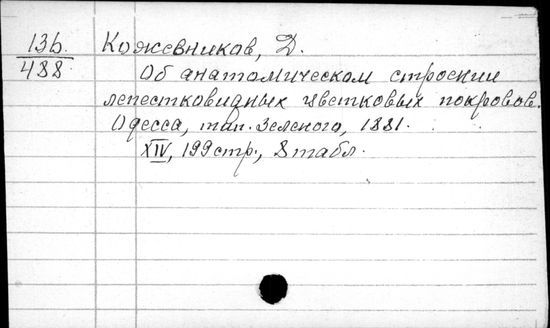 136. Кожевников, Д.
488 Об анатомическом строении
лепестковидных цветковых покровов.
Одесса, тип. Зеленого, 1881.
XIV, 199 стр., 8 табл.